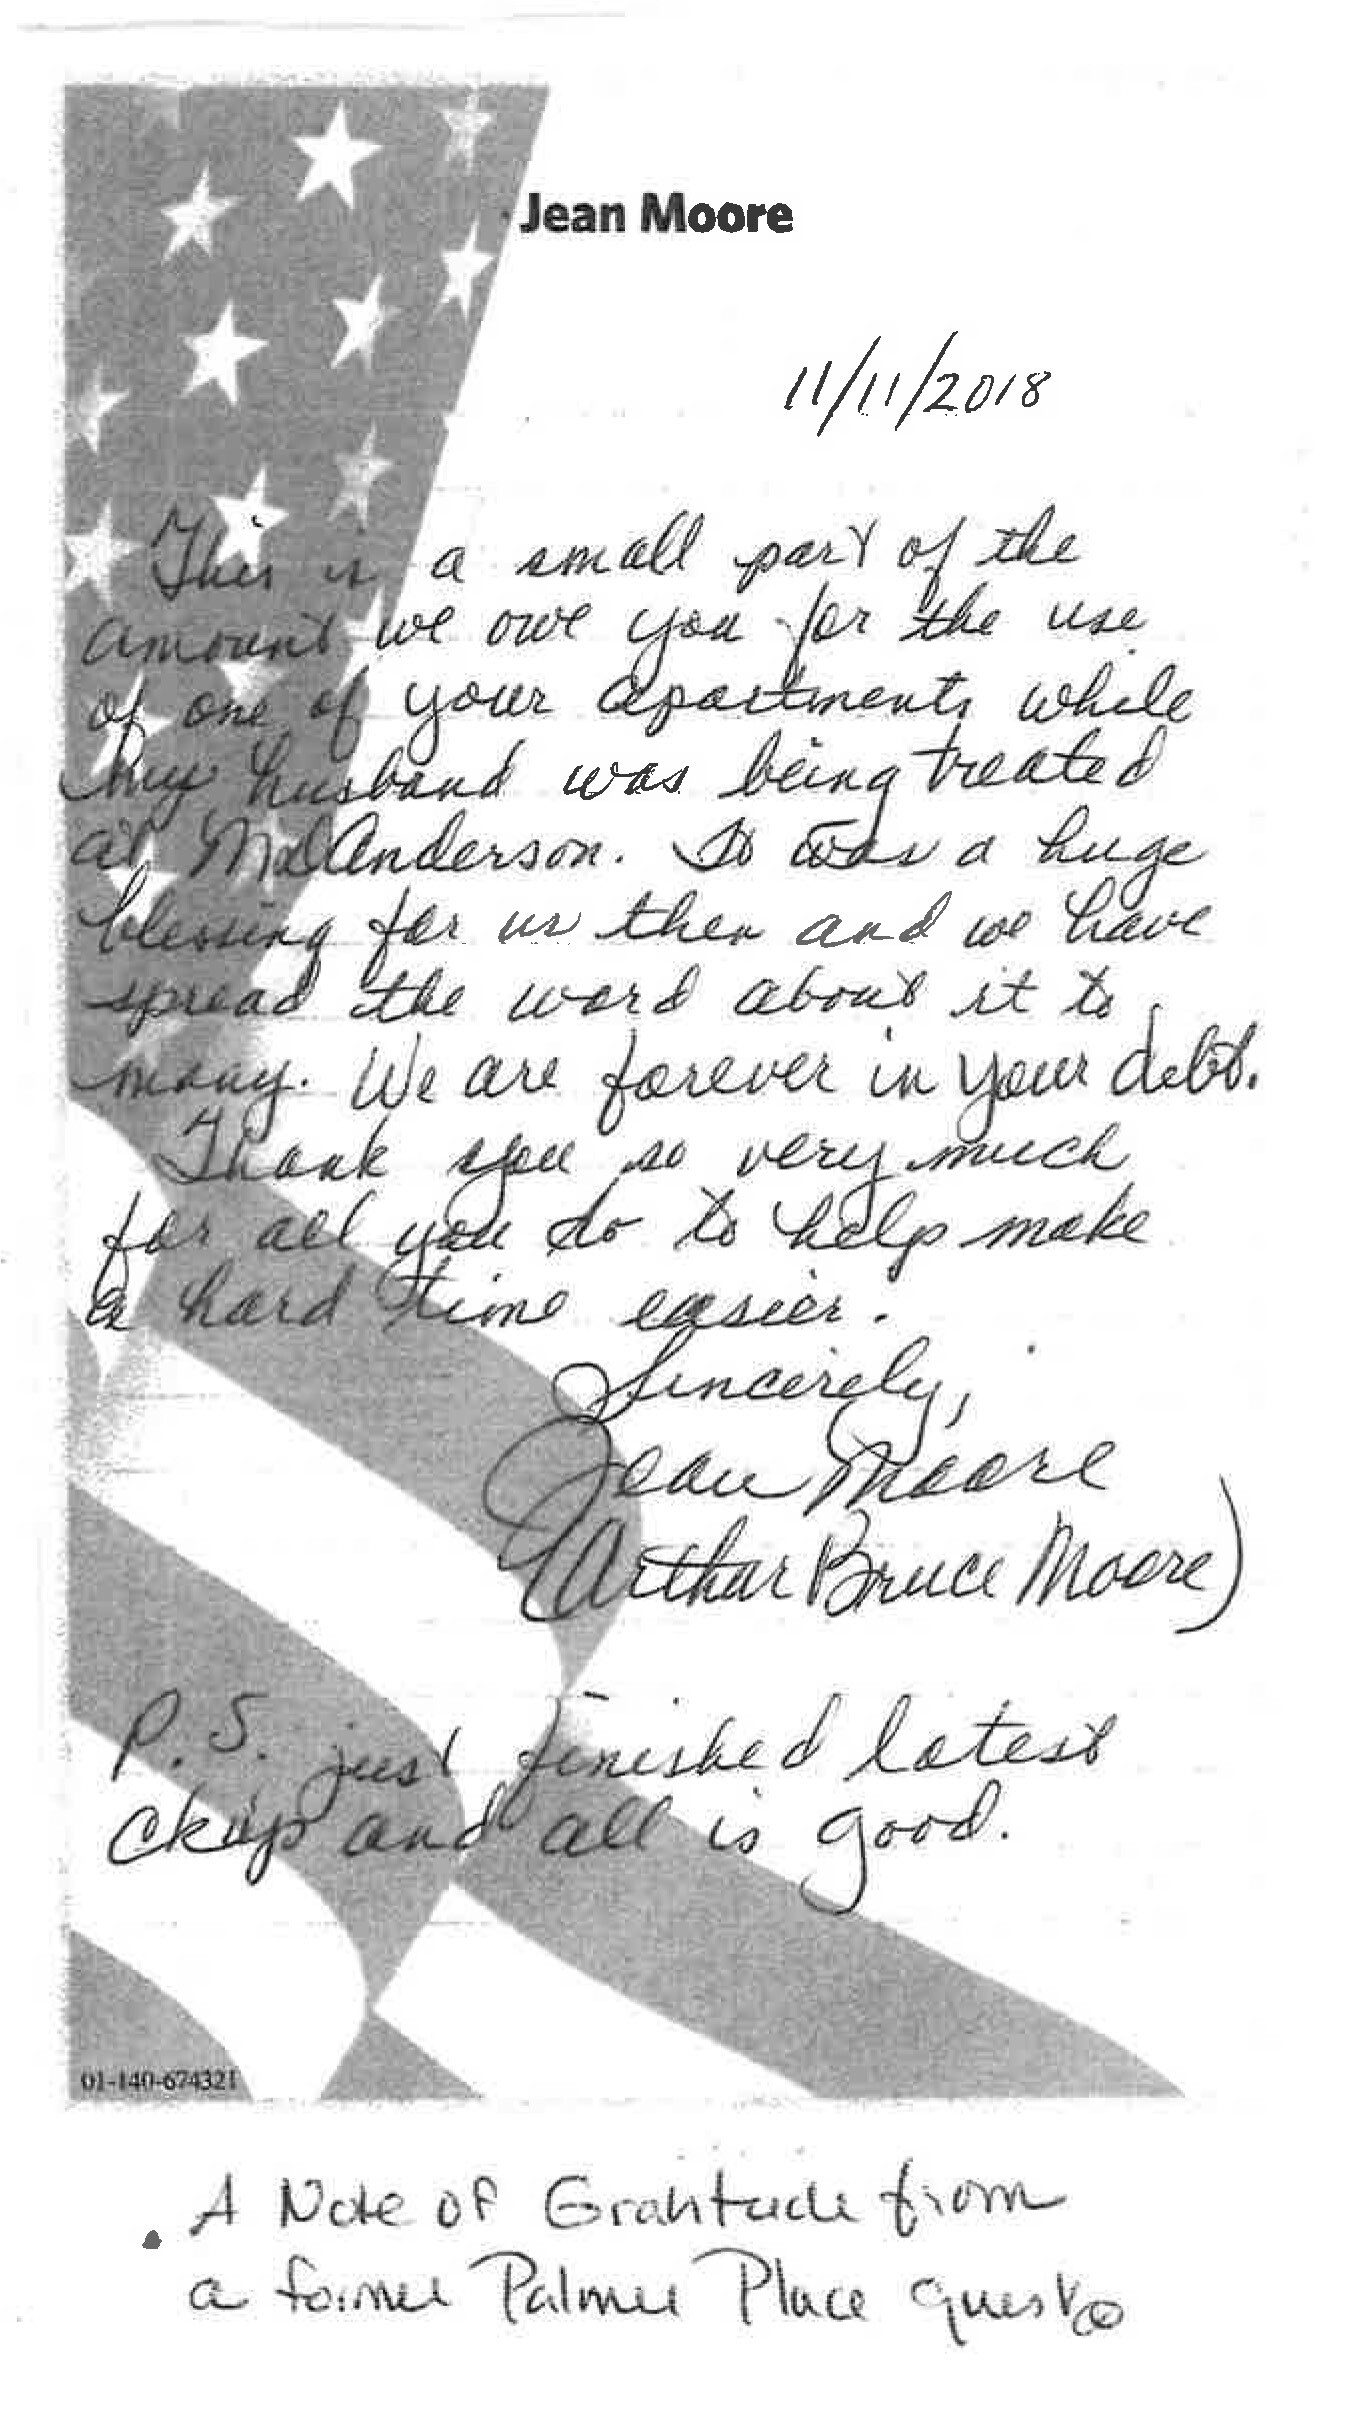 Jean Moore
11/11/2018
This is a small part of the
amount we owe you for the use
of one of your apartments while
my husband was being treated
at MDAnderson. It was a huge
blessing for us then and we have
spread the word about it to
many. We are forever in your debt.
Thank you so very much
for all you do to help make
a hard time easier.
Sincerely,
Jean Moore
(Arthur Bruce Moore)
P.S. just finished latest
ckup and all is good.
01-140-674321
A Note of Gratitude from
a former Palmer Place guest